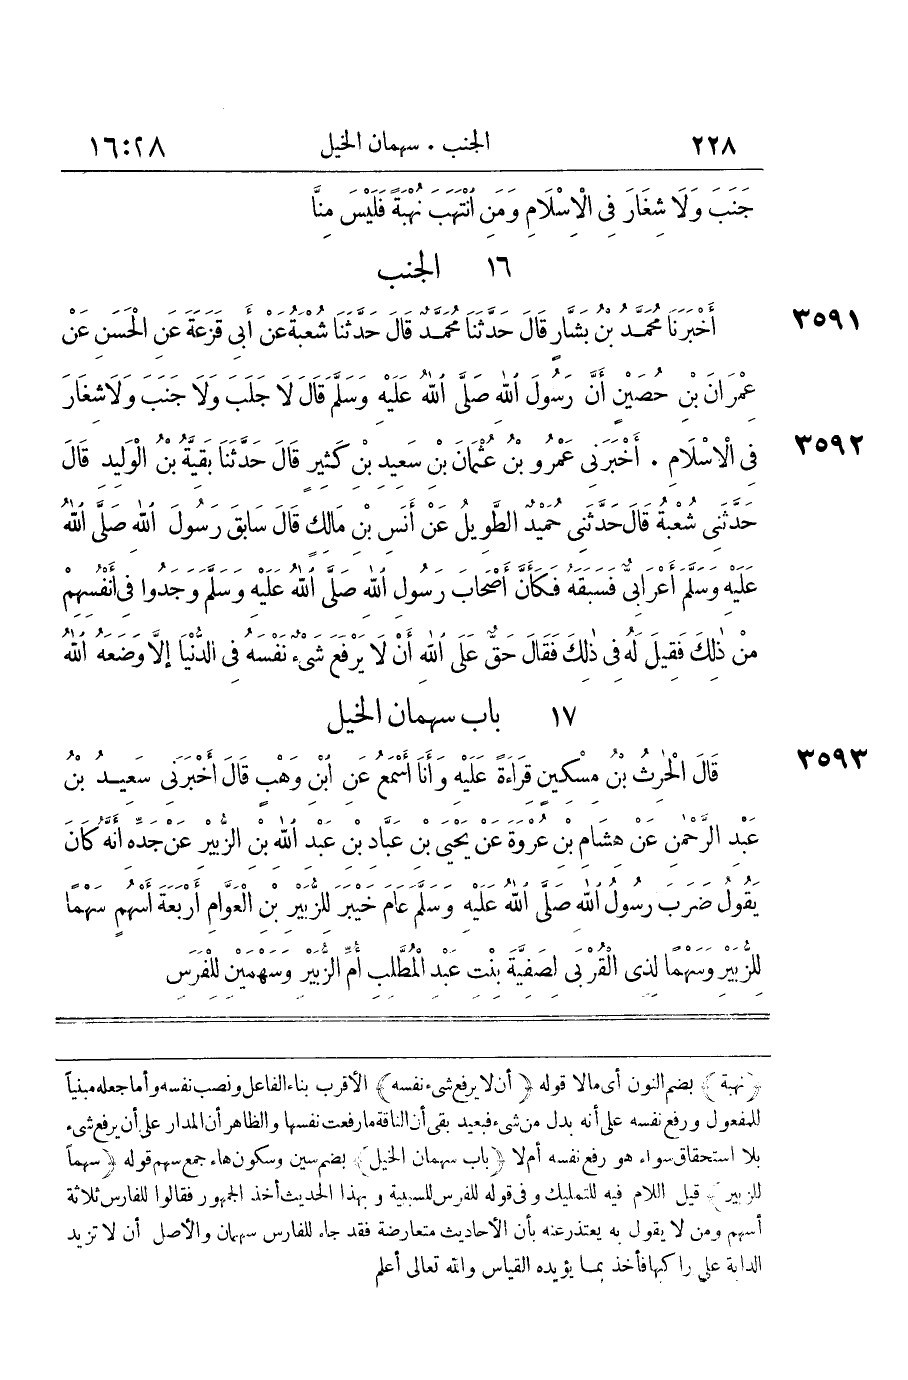 ٢٢٨ الجنب . سهمان الخيل ١٦:٢٨
جَنَبَ وَلَا شِغَارَ فِى الْاِسْلَامِ وَمَنِ انْتَهَبَ نُهْبَةً فَلَيْسَ مِنَّا
١٦ الجنب
٣٥٩١ أَخْبَرَنَا مُحَمَّدُ بْنُ بَشَّارٍ قَالَ حَدَّثَنَا مُحَمَّدٌ قَالَ حَدَّثَنَا شُعْبَةُ عَنْ أَبِى قَزَعَةَ عَنِ الْحَسَنِ عَنْ
عِمْرَانَ بْنِ حُصَيْنٍ أَنَّ رَسُولَ اللهِ صَلَّى اللهُ عَلَيْهِ وَسَلَّمَ قَالَ لَا جَلَبَ وَلَا جَنَبَ وَلَا شِغَارَ
٣٥٩٢ فِى الْاِسْلَامِ . أَخْبَرَنِى عَمْرُو بْنُ عُثْمَانَ بْنِ سَعِيدِ بْنِ كَثِيرٍ قَالَ حَدَّثَنَا بَقِيَّةُ بْنُ الْوَلِيدِ قَالَ
حَدَّثَنِى شُعْبَةُ قَالَ حَدَّثَنِى حُمَيْدٌ الطَّوِيلُ عَنْ أَنَسِ بْنِ مَالِكٍ قَالَ سَابَقَ رَسُولَ اللهِ صَلَّى اللهُ
عَلَيْهِ وَسَلَّمَ أَعْرَابِىٌّ فَسَبَقَهُ فَكَأَنَّ أَصْحَابَ رَسُولِ اللهِ صَلَّى اللهُ عَلَيْهِ وَسَلَّمَ وَجَدُوا فِى أَنْفُسِهِمْ
مِنْ ذٰلِكَ فَقِيلَ لَهُ فِى ذٰلِكَ فَقَالَ حَقٌّ عَلَى اللهِ أَنْ لَا يَرْفَعَ شَىْءٌ نَفْسَهُ فِى الدُّنْيَا إِلَّا وَضَعَهُ اللهُ
١٧ باب سهمان الخيل
٣٥٩٣ قَالَ الْحٰرِثُ بْنُ مِسْكِينٍ قِرَاءَةً عَلَيْهِ وَأَنَا أَسْمَعُ عَنِ ابْنِ وَهْبٍ قَالَ أَخْبَرَنِى سَعِيدُ بْنُ
عَبْدِ الرَّحْمٰنِ عَنْ هِشَامِ بْنِ عُرْوَةَ عَنْ يَحْيَى بْنِ عَبَّادِ بْنِ عَبْدِ اللهِ بْنِ الزُّبَيْرِ عَنْ جَدِّهِ أَنَّهُ كَانَ
يَقُولُ ضَرَبَ رَسُولُ اللهِ صَلَّى اللهُ عَلَيْهِ وَسَلَّمَ عَامَ خَيْبَرَ لِلزُّبَيْرِ بْنِ الْعَوَّامِ أَرْبَعَةَ أَسْهُمٍ سَهْمًا
لِلزُّبَيْرِ وَسَهْمًا لِذِى الْقُرْبَى لِصَفِيَّةَ بِنْتِ عَبْدِ الْمُطَّلِبِ أُمِّ الزُّبَيْرِ وَسَهْمَيْنِ لِلْفَرَسِ
﴿نهبة﴾ بضم النون أى مالا قوله ﴿أن لا يرفع شىء نفسه﴾ الأقرب بناء الفاعل ونصب نفسه وأما جعله مبنياً
للمفعول ورفع نفسه على أنه بدل من شىء فبعيد بقى أن الناقة ما رفعت نفسها والظاهر أن المدار على أن يرفع شىء
بلا استحقاق سواء هو رفع نفسه أم لا ﴿باب سهمان الخيل﴾ بضم سين وسكون هاء جمع سهم قوله ﴿سهماً
للزبير﴾ قيل اللام فيه للتمليك وفى قوله للفرس للسببية وبهذا الحديث أخذ الجمهور فقالوا للفارس ثلاثة
أسهم ومن لا يقول به يعتذر عنه بأن الأحاديث متعارضة فقد جاء للفارس سهمان والأصل أن لا تزيد
الدابة على راكبها فأخذ بمـا يؤيده القياس والله تعالى أعلم